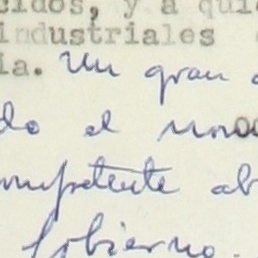 cidos, y a quie
industriales
ia. Un gran
do el
mpetente ab
Gobierno.